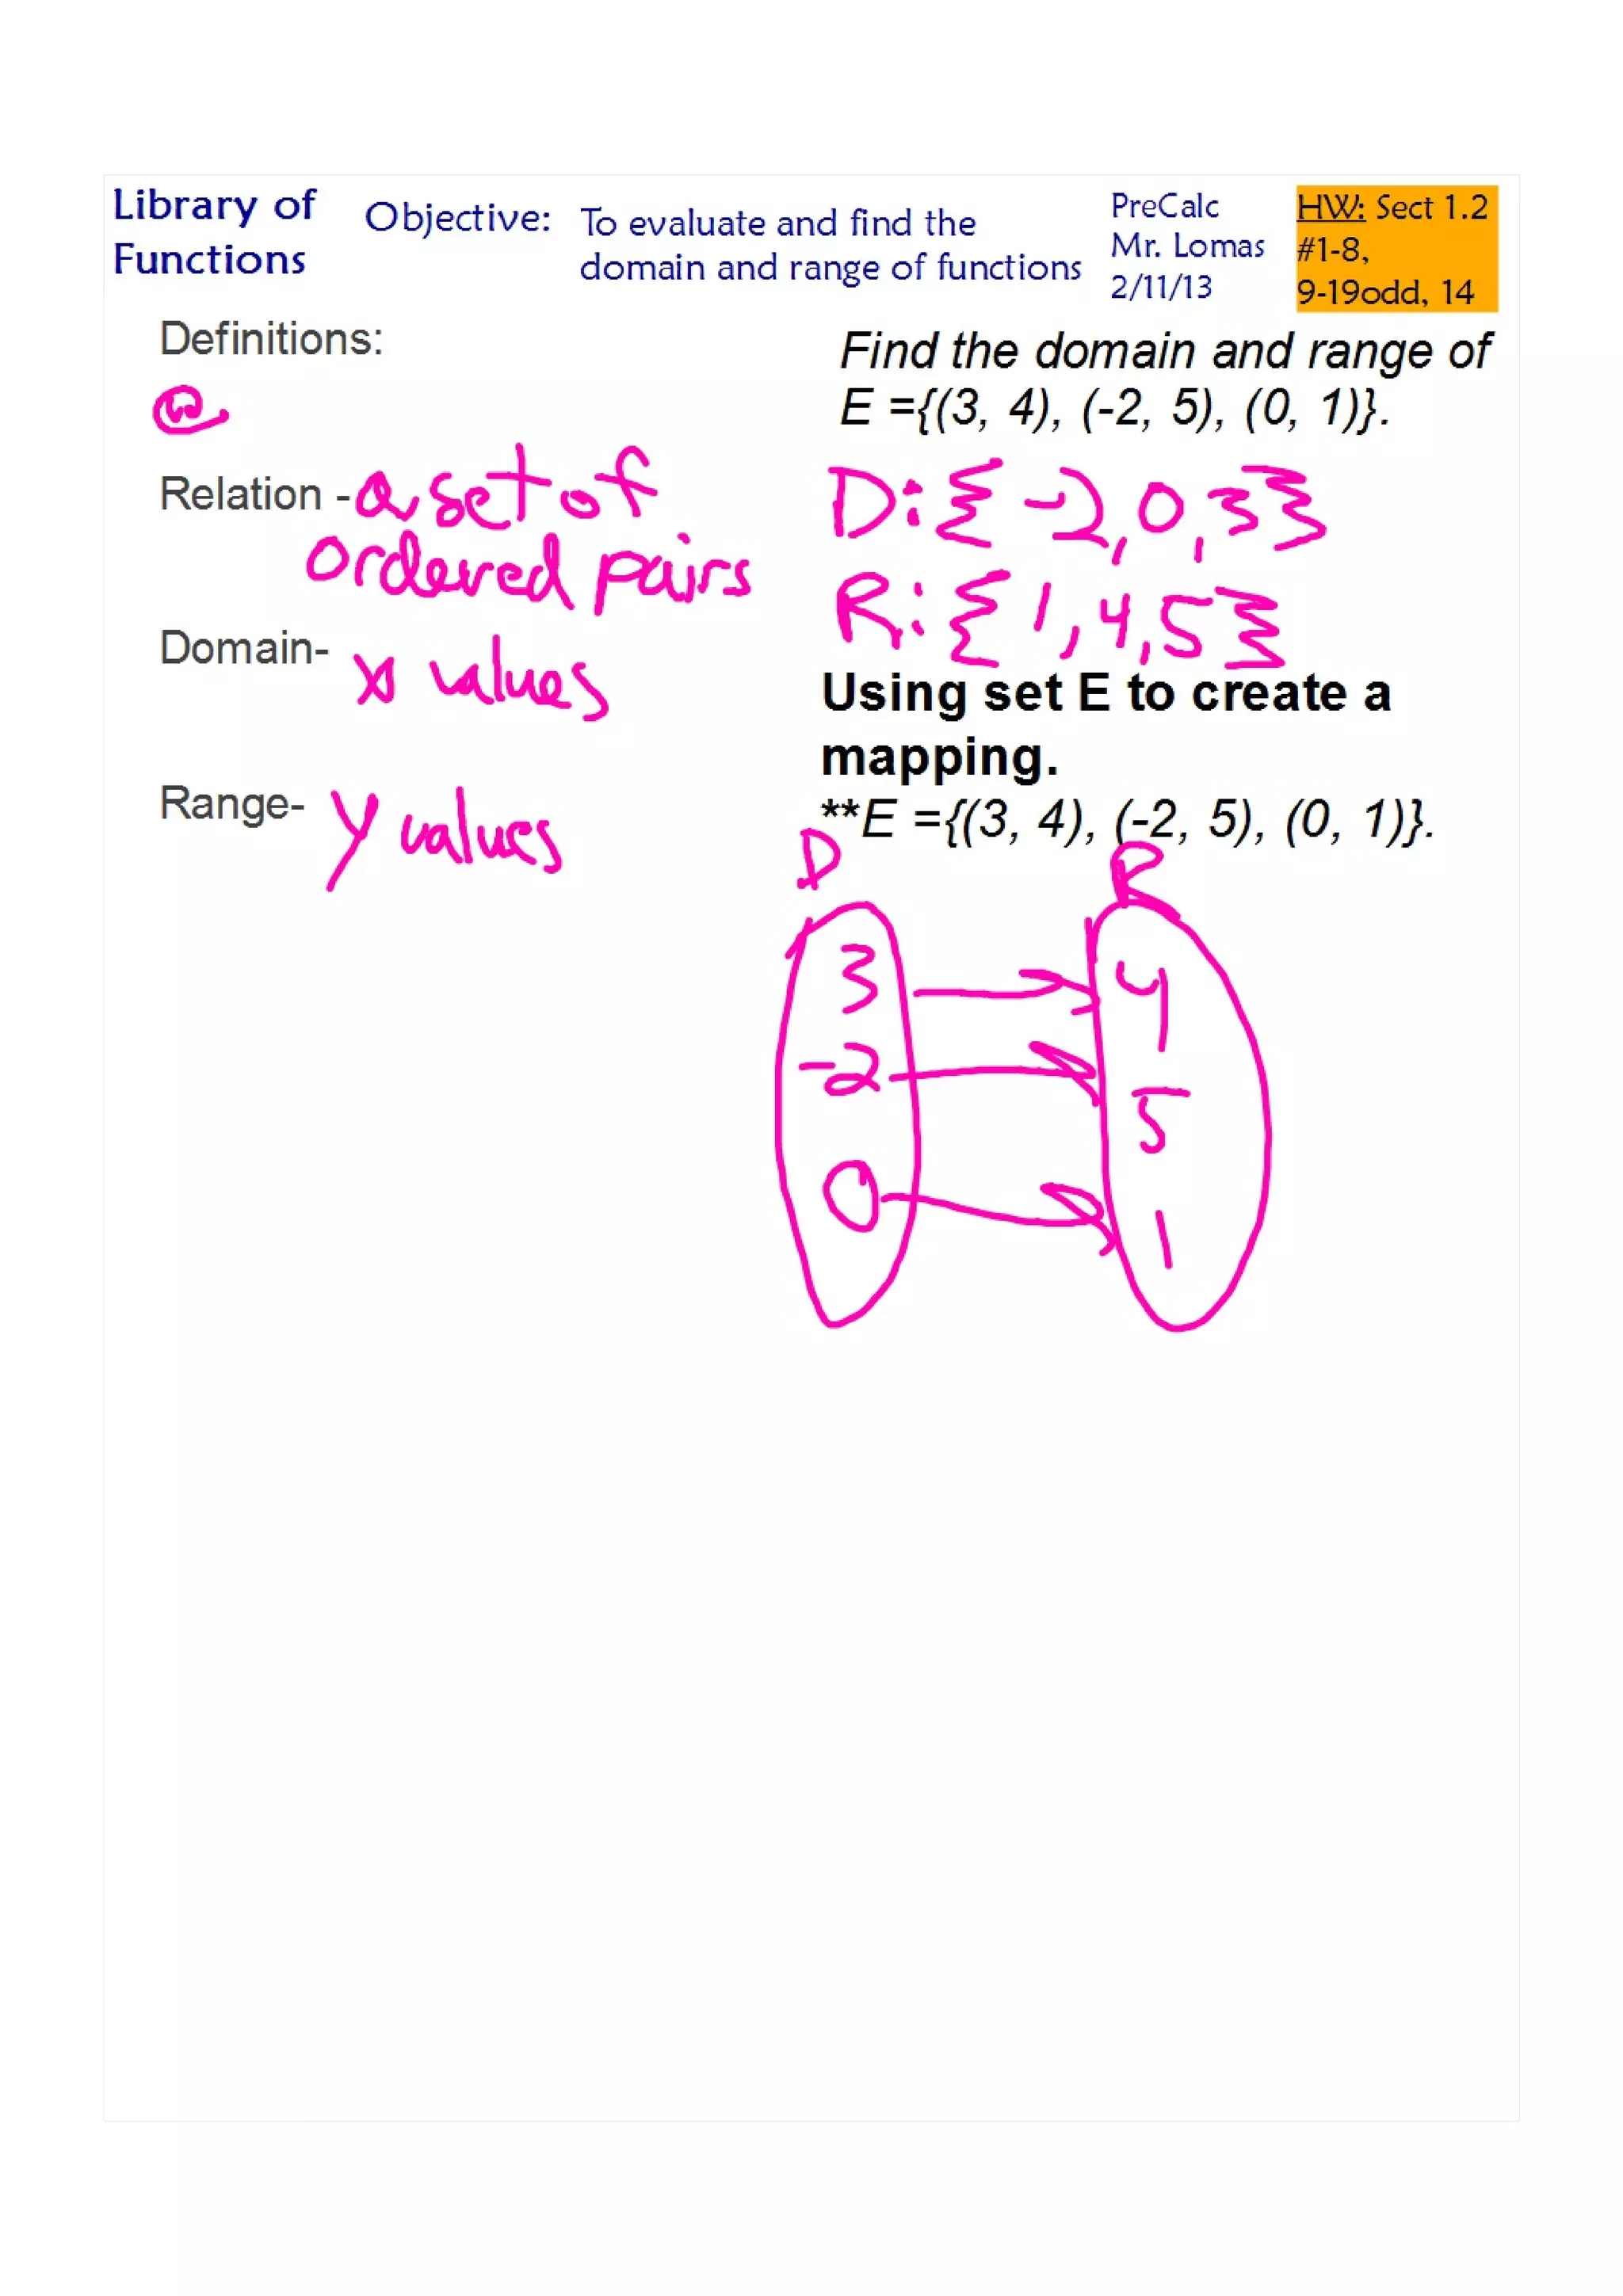 Library of
Functions
Objective:
To evaluate and find the
domain and range of functions
PreCalc
Mr. Lomas
2/11/13
HW: Sect 1.2
#1-8,
9-19odd, 14
Definitions:
Relation - a set of
ordered pairs
Domain- x values
Range- y values
Find the domain and range of
E ={(3, 4), (-2, 5), (0, 1)}.
D: {-2, 0, 3}
R: {1, 4, 5}
Using set E to create a
mapping.
**E ={(3, 4), (-2, 5), (0, 1)}.
D R
3 4
-2 5
0 1